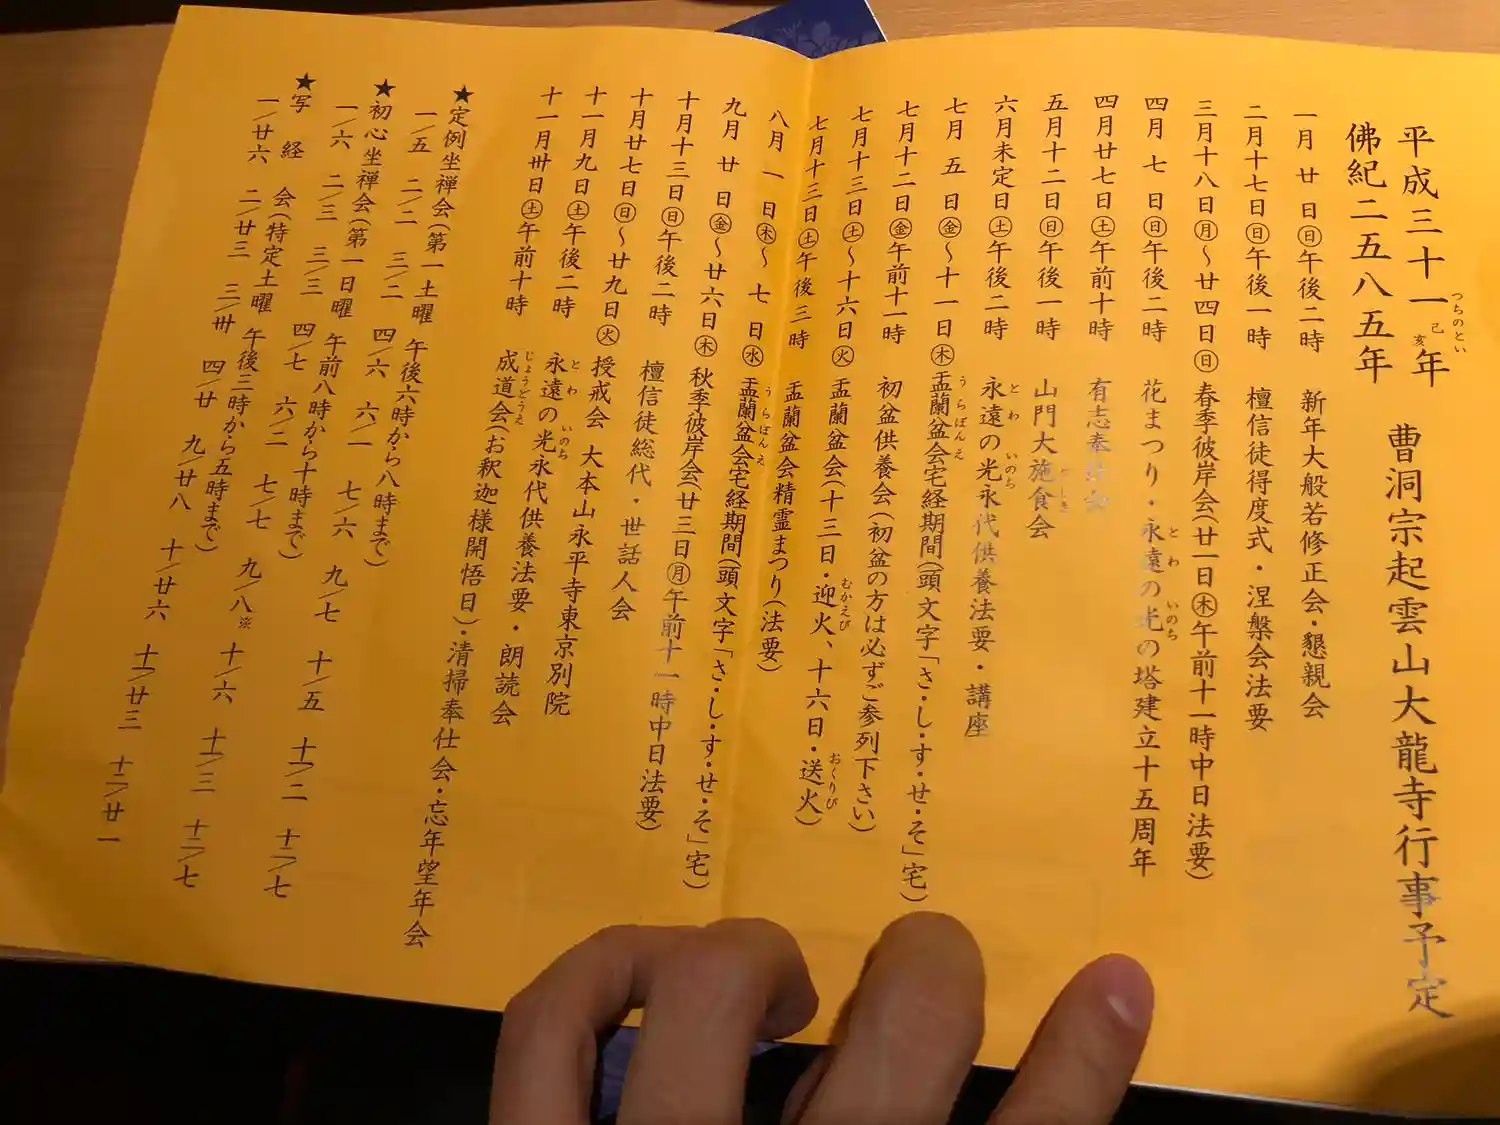 平成三十一己亥年 曹洞宗起雲山大龍寺行事予定
つちのとい
佛紀二五八五年
一月 廿 日㊐午後二時 新年大般若修正会・懇親会
二月十七日㊐午後一時 檀信徒得度式・涅槃会法要
三月十八日㊊〜廿四日㊐ 春季彼岸会(廿一日㊍午前十一時中日法要)
四月 七 日㊐午後二時 花まつり・永遠の光の塔建立十五周年
とわ いのち
四月廿七日㊏午前十時 有志奉仕会
五月十二日㊐午後一時 山門大施食会
六月未定日㊏午後二時 永遠の光永代供養法要・講座
とわ いのち
七月 五 日㊎〜十一日㊍ 盂蘭盆会宅経期間(頭文字「さ・し・す・せ・そ」宅)
うらぼんえ
七月十二日㊎午前十一時 初盆供養会(初盆の方は必ずご参列下さい)
七月十三日㊏〜十六日㊋ 盂蘭盆会(十三日・迎火、十六日・送火)
むかえび おくりび
七月十三日㊏午後三時 盂蘭盆会精霊まつり(法要)
八月 一 日㊍〜 七 日㊌ 盂蘭盆会宅経期間(頭文字「さ・し・す・せ・そ」宅)
うらぼんえ
九月 廿 日㊎〜廿六日㊍ 秋季彼岸会(廿三日㊊午前十一時中日法要)
十月十三日㊐午後二時 檀信徒総代・世話人会
十月廿七日㊐〜廿九日㊋ 授戒会 大本山永平寺東京別院
十一月九日㊏午後二時 永遠の光永代供養法要・朗読会
とわ いのち
十一月卅日㊏午前十時 成道会(お釈迦様開悟日)・清掃奉仕会・忘年望年会
じょうどうえ
★定例坐禅会(第一土曜 午後六時から八時まで)
一/五 二/二 三/二 四/六 六/一 七/六 九/七 十/五 十一/二 十二/七
★初心坐禅会(第一日曜 午前八時から十時まで)
一/六 二/三 三/三 四/七 六/二 七/七 九/八※ 十/六 十一/三 十二/七
★写 経 会(特定土曜 午後三時から五時まで)
一/廿六 二/廿三 三/卅 四/廿 九/廿八 十/廿六 十一/廿三 十二/廿一